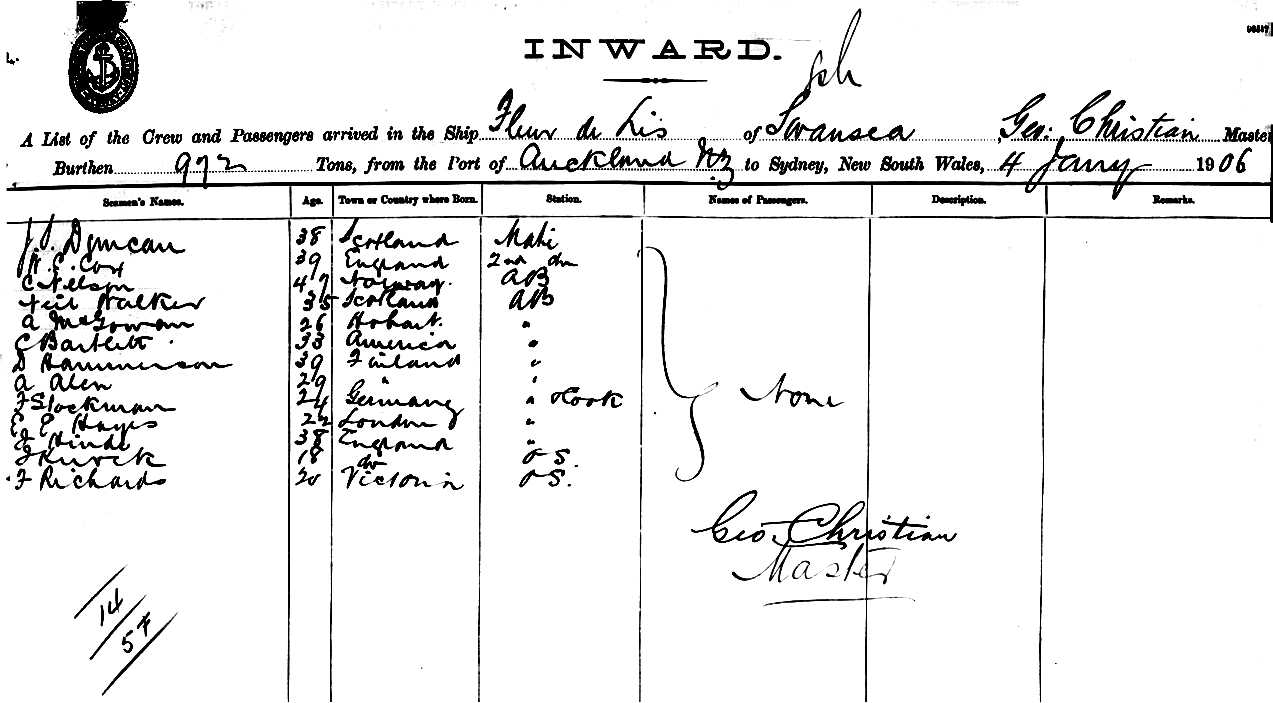 INWARD.
A List of the Crew and Passengers arrived in the Ship Fleur de Lis of Swansea, Geo: Christian Master
Burthen 972 Tons, from the Port of Auckland NZ to Sydney, New South Wales, 4 Jany 1906
Seamen's Names. Age. Town or Country where Born. Station. Names of Passengers. Description. Remarks.
Duncan 38 Scotland Mate
H. E. Cox 39 England 2nd do
C Nelson 47 Norway. AB
Neil Walker 35 Scotland AB
A McGowan 26 Hobart. "
C Bartlett 33 America "
D Hammerson 39 Finland "
A Alen 29 " "
F Stockman 24 Germany " Cook None
E E Hayes 22 London "
J Hinde 38 England "
18 do O S.
F Richards 20 Victoria O S.
Geo. Christian
Master
14
57